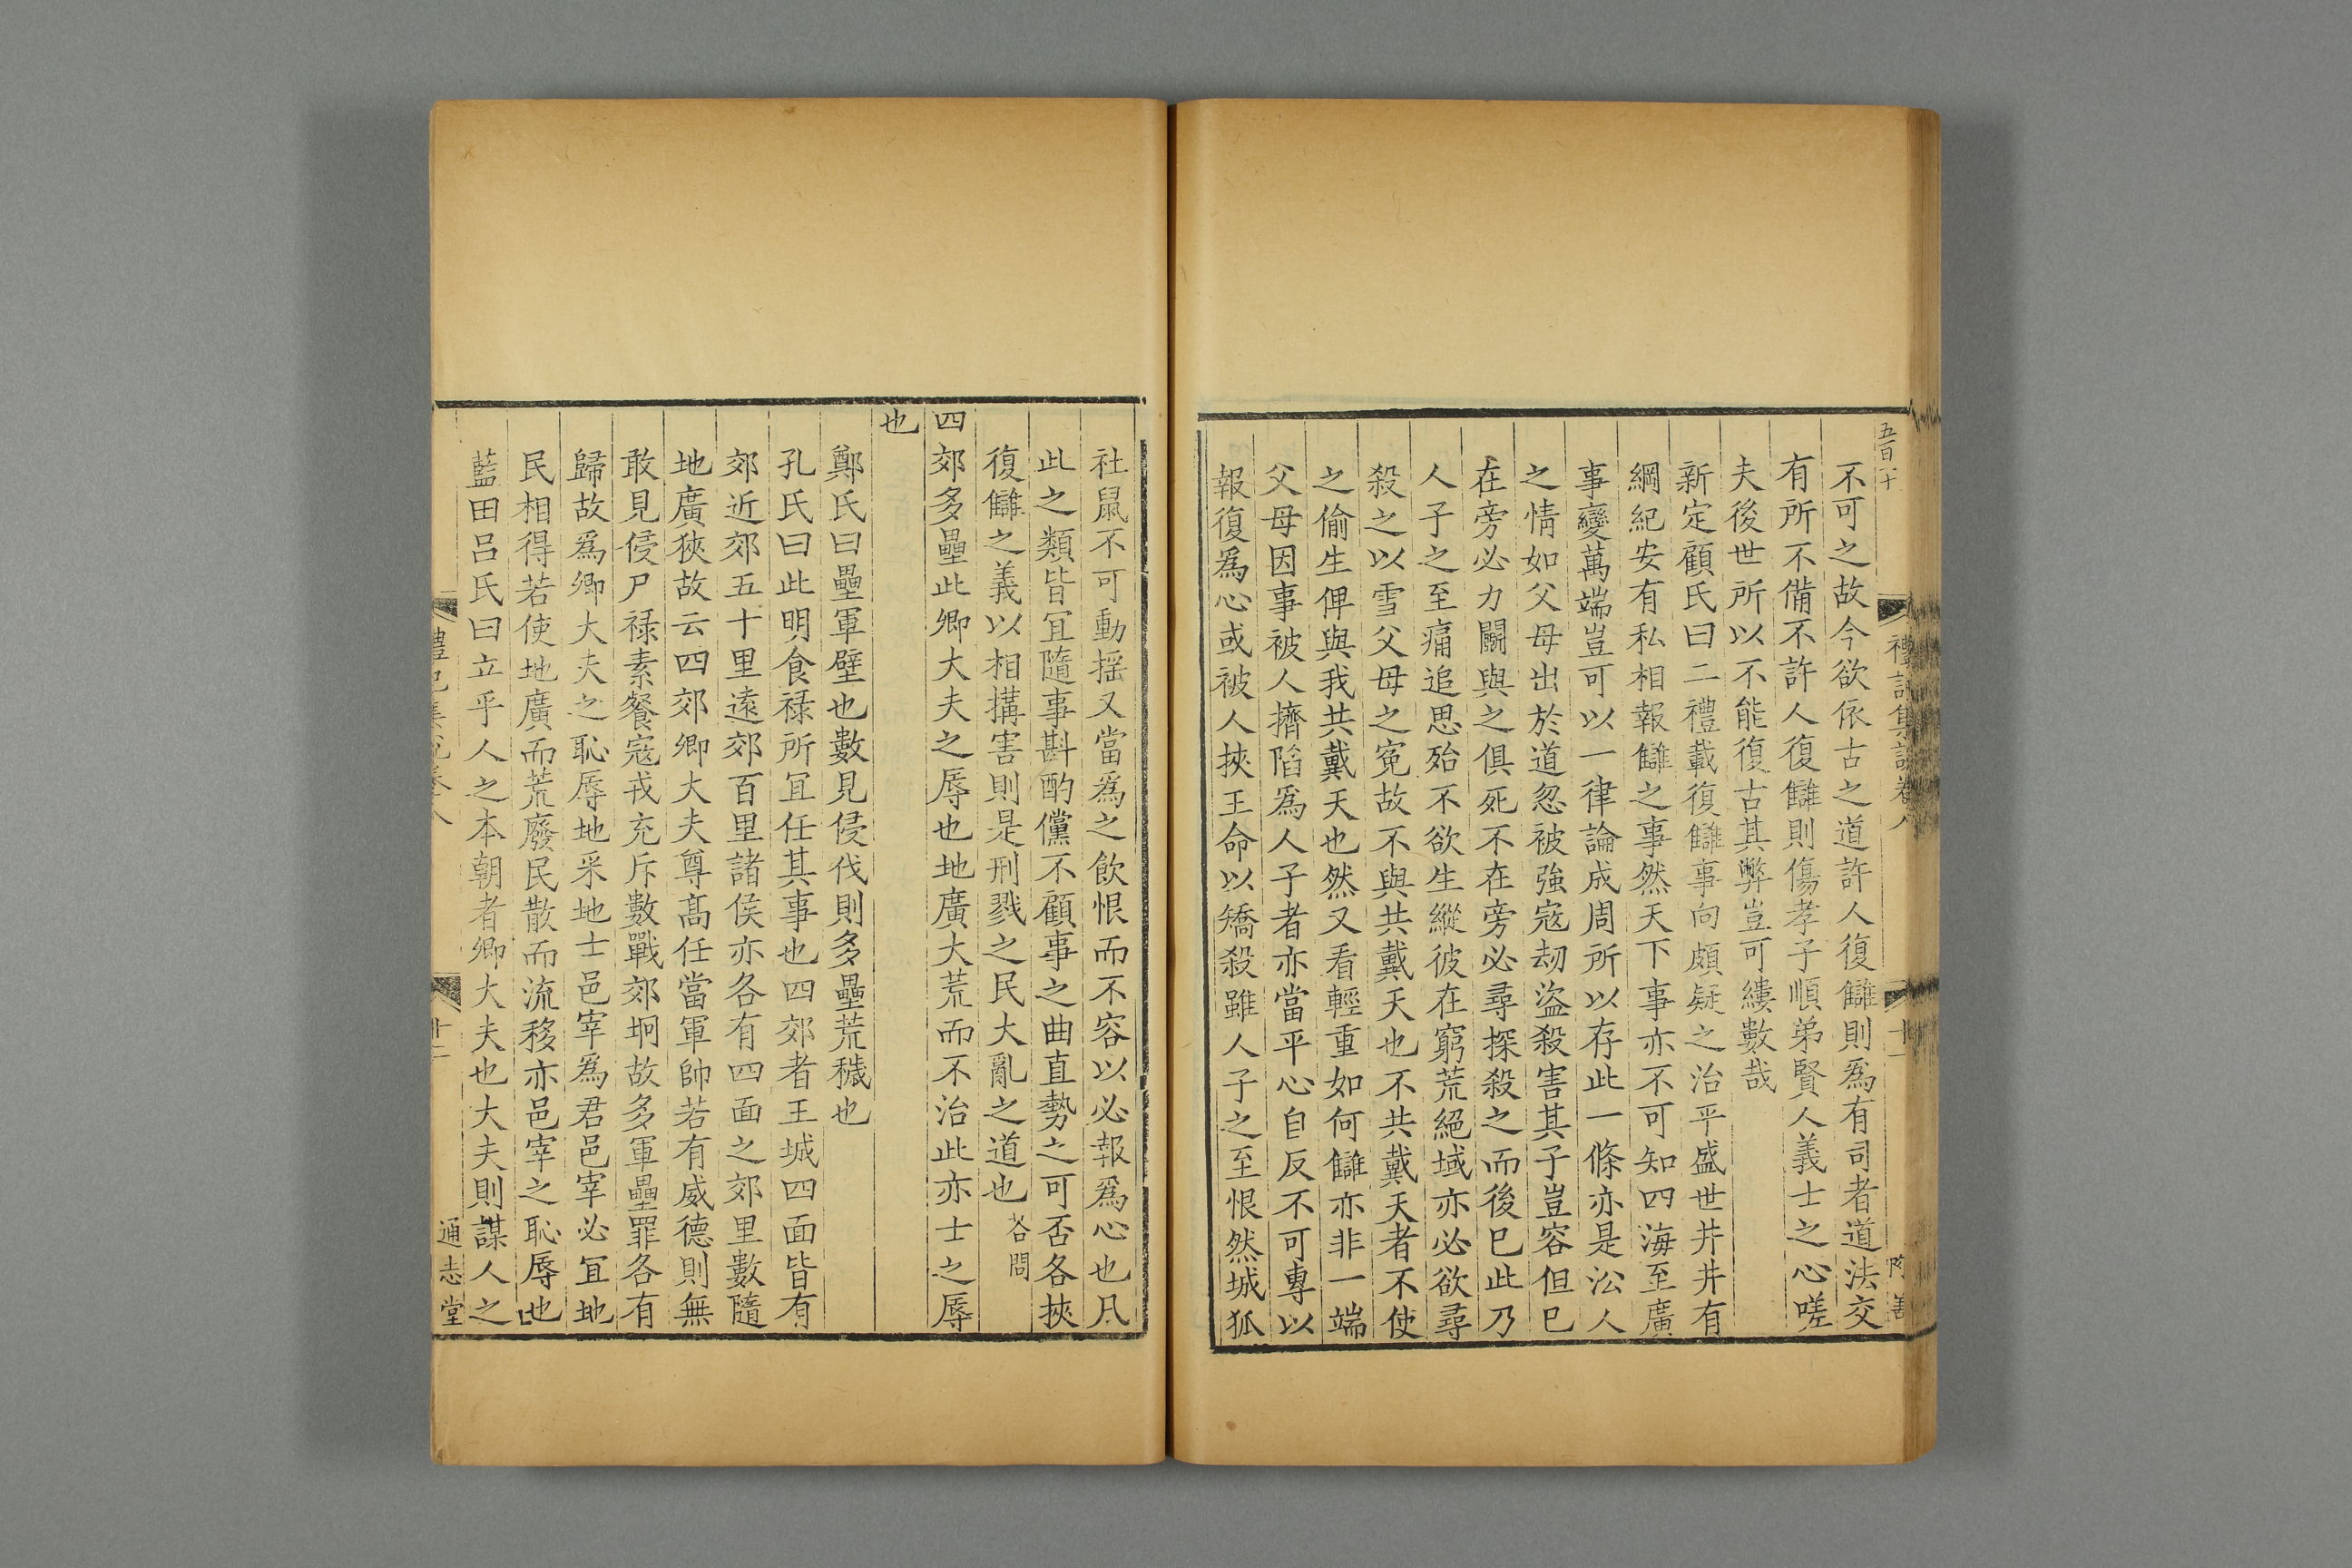 五百八十
禮記集說卷八
十一
不可之故今欲依古之道許人復讎則爲有司者道法交
有所不備不許人復讎則傷孝子順弟賢人義士之心嗟
夫後世所以不能復古其弊豈可縷數哉
新定顧氏曰二禮載復讎事向頗疑之治平盛世井井有
綱紀安有私相報讎之事然天下事亦不可知四海至廣
事變萬端豈可以一律論成周所以存此一條亦是㳂人
之情如父母出於道忽被強寇刼盜殺害其子豈容但已
在旁必力鬬與之俱死不在旁必尋探殺之而後已此乃
人子之至痛追思殆不欲生縱彼在窮荒絕域亦必欲尋
殺之以雪父母之冤故不與共戴天也不共戴天者不使
之偷生俾與我共戴天也然又看輕重如何讎亦非一端
父母因事被人擠陷爲人子者亦當平心自反不可專以
報復爲心或被人挾王命以矯殺雖人子之至恨然城狐
社鼠不可動揺又當爲之飲恨而不容以必報爲心也凡
此之類皆宜隨事斟酌儻不顧事之曲直勢之可否各挾
復讎之義以相搆害則是刑戮之民大亂之道也 荅問
四郊多壘此卿大夫之辱也地廣大荒而不治此亦士之辱
也
鄭氏曰壘軍壁也數見侵伐則多壘荒穢也
孔氏曰此明食祿所宜任其事也四郊者王城四面皆有
郊近郊五十里遠郊百里諸侯亦各有四面之郊里數隨
地廣狹故云四郊卿大夫尊高任當軍帥若有威德則無
敢見侵尸祿素餐寇戎充斥數戰郊坰故多軍壘罪各有
歸故爲卿大夫之恥辱地采地士邑宰爲君邑宰必宜地
民相得若使地廣而荒廢民散而流移亦邑宰之恥辱也
藍田呂氏曰立乎人之本朝者卿大夫也大夫則謀人之
禮記集說卷八
十二
通志堂